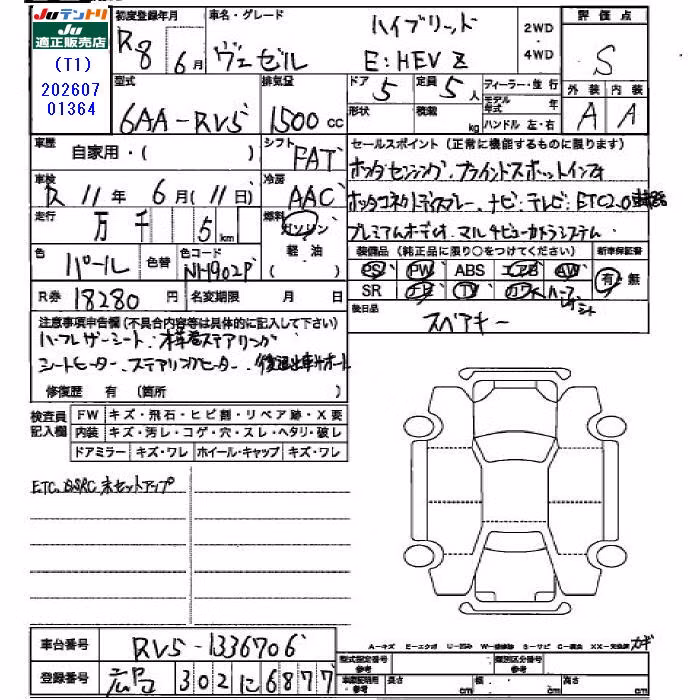 JUテントリ
JU
適正販売店
(T1)
202607
01364
初度登録年月
R8 6月
車名・グレード
ヴェゼル
ハイブリッド
E:HEV Z
2WD
4WD
評価点
S
外装 内装
A A
型式
6AA-RV5
排気量
1500 cc
ドア
5
定員
5人
形状
積載 kg
ディーラー・並行
モデル年式 年
ハンドル 左・右
車歴
自家用・( )
シフト
FAT
セールスポイント (正常に機能するものに限ります)
ホンダセンシング、ブラインドスポットインフォ
ホンダコネクトディスプレー、ナビ・テレビ・ETC2.0車載器
プレミアムオーディオ、マルチビューカメラシステム
車検
R 11年 6月(11日)
冷房
AAC
走行
万 千 5 km
燃料
ガソリン
軽油
( )
色
パール
色替
色コード
NH902P
装備品 (純正品に限り○をつけてください)
PS PW ABS エアB AW
SR ナビ TV カワ ハーフレザーシート
新車保証書
有・無
R券 18280 円
名変期限 月 日
後日品
スペアキー
注意事項申告欄 (不具合内容等は具体的に記入して下さい)
ハーフレザーシート、本革巻ステアリング
シートヒーター、ステアリングヒーター、後退出庫サポート
修復歴 有 (箇所 )
検査員記入欄
FW キズ・飛石・ヒビ割・リペア跡・X要
内装 キズ・汚レ・コゲ・穴・スレ・ヘタリ・破レ
ドアミラー キズ・ワレ ホイール・キャップ キズ・ワレ
ETC、DSRC 未セットアップ
車台番号 RV5-1336706
登録番号 広島 302 に 6877
A-キズ E-エクボ U-凹み W-補修跡 S-サビ C-腐食 XX-交換済 カギ
型式指定番号 参考
類別区分番号 参考
車庫証明用 参考
長さ cm
幅 cm
高さ cm